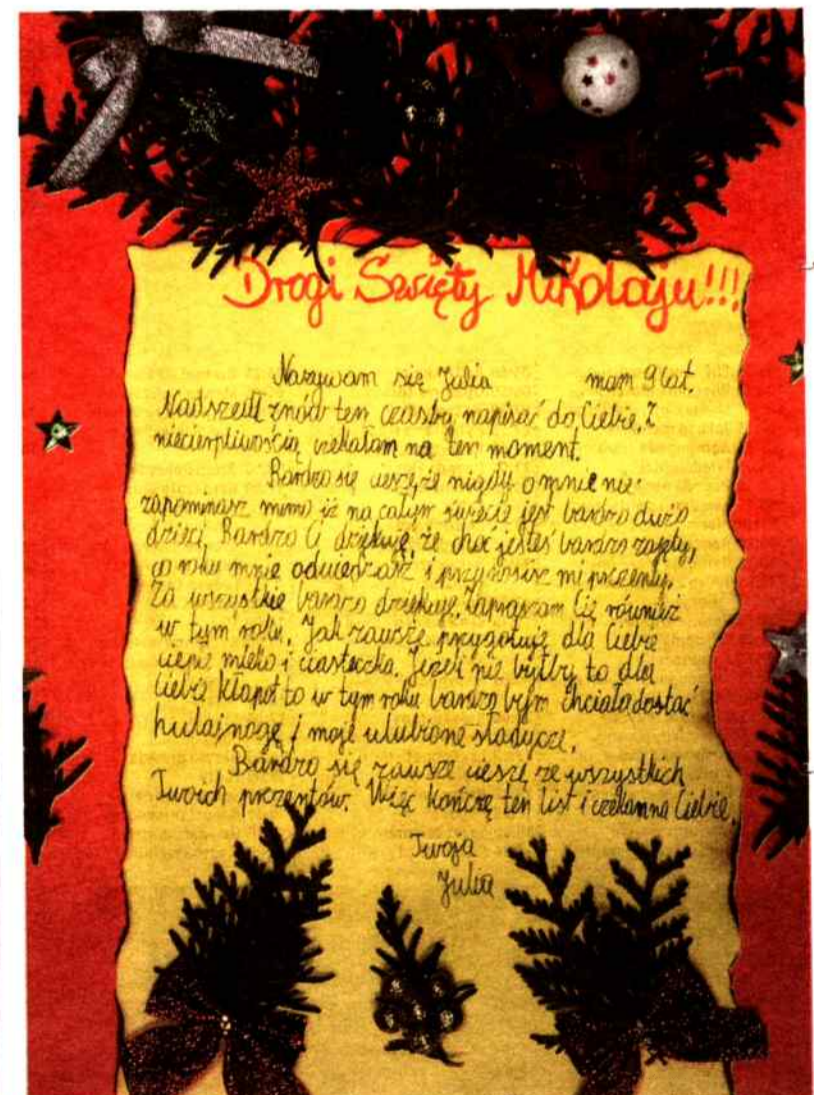 Drogi Święty Mikołaju!!!
Nazywam się Julia mam 9 lat.
Nadszedł znów ten czas by napisać do Ciebie. Z
niecierpliwością czekałam na ten moment.
Bardzo się cieszę, że nigdy o mnie nie
zapominasz mimo iż na całym świecie jest bardzo dużo
dzieci. Bardzo Ci dziękuję, że choć jesteś bardzo zajęty,
co roku mnie odwiedzasz i przynosisz mi prezenty.
Za wszystkie bardzo dziękuję. Zapraszam Cię również
w tym roku. Jak zawsze przygotuję dla Ciebie
ciepłe mleko i ciasteczka. Jeżeli nie byłby to dla
Ciebie kłopot to w tym roku bardzo bym chciała dostać
hulajnogę i moje ulubione słodycze.
Bardzo się zawsze cieszę ze wszystkich
Twoich prezentów. Więc kończę ten list i czekam na Ciebie.
Twoja
Julia